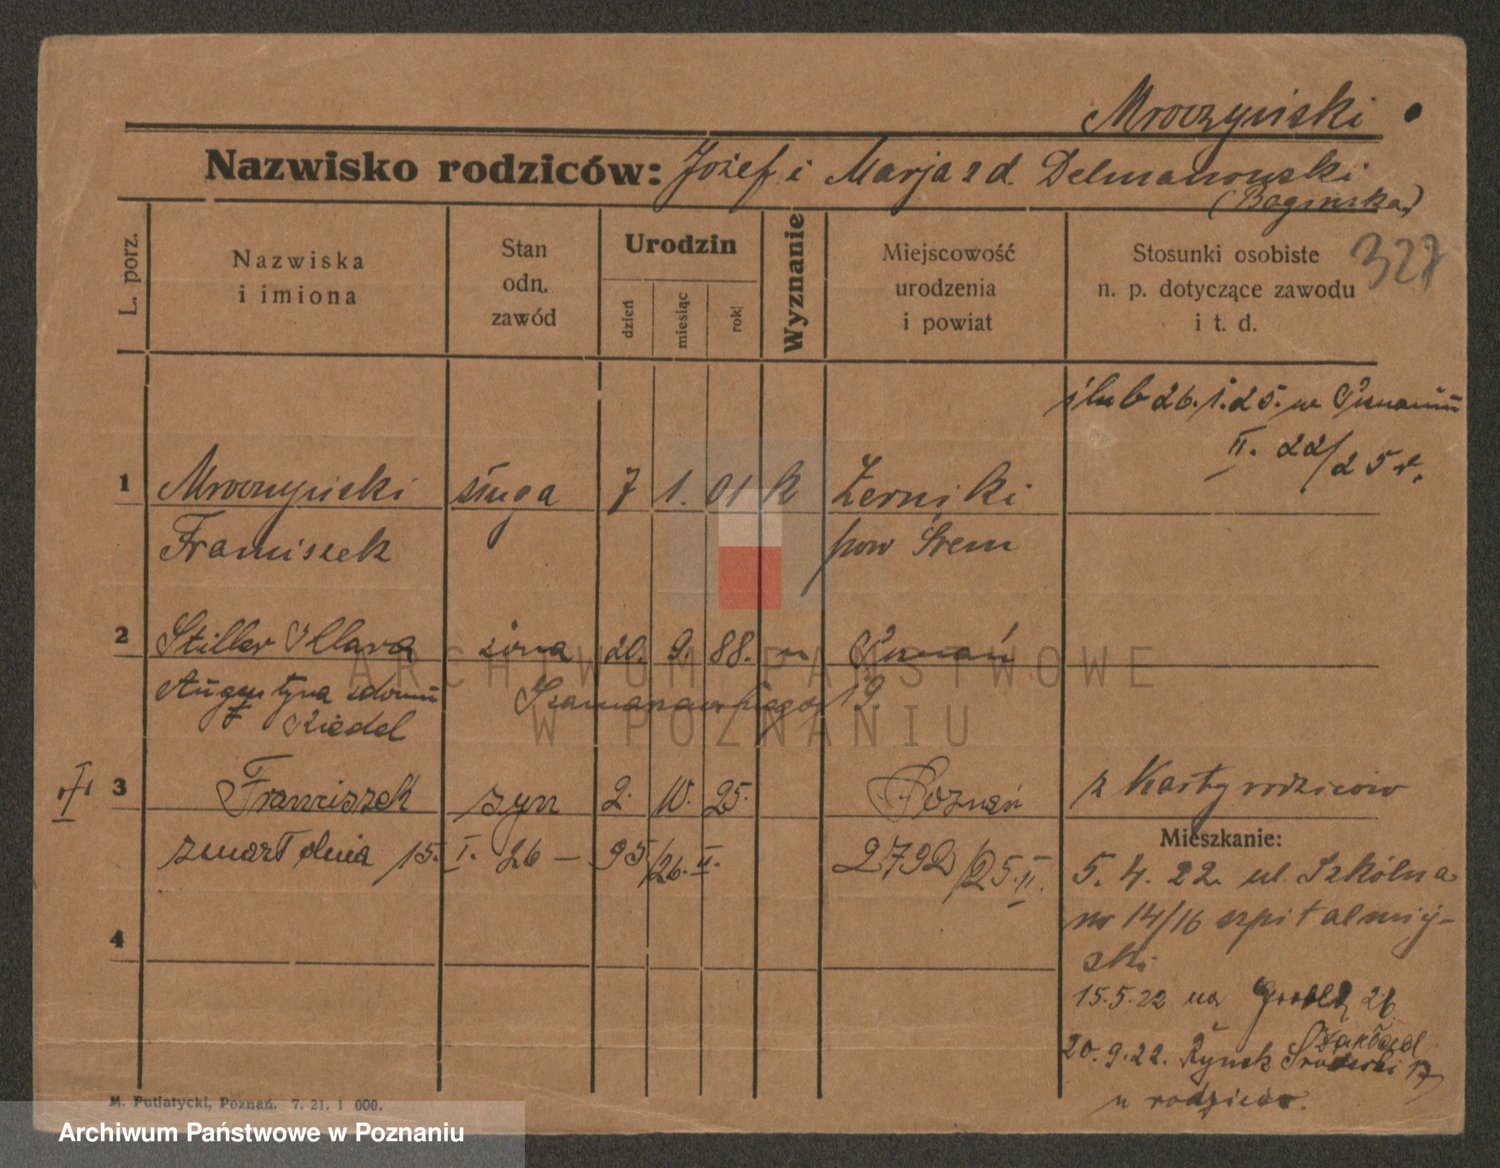 Mroczyński
Nazwisko rodziców: Józef i Marja z d. Delmanowski
(Bagińska)
L. porz.
Nazwiska
i imiona
Stan
odn.
zawód
Urodzin
dzień
miesiąc
rok
Wyznanie
Miejscowość
urodzenia
i powiat
Stosunki osobiste
n. p. dotyczące zawodu
i t. d.
327
ślub 26.1.25. w Poznaniu
II. 22/25 r.
1 Mroczyński sługa 7 1. 01 k Żerniki
Franciszek pow Śrem
2 Stiller Klara żona 20. 9. 88. Poznań
Augustyna zdomu 19.
Riedel
3 Franciszek syn 2. 10. 25. Poznań z Karty rodziców
zmarł dnia 15. I. 26 — 95/26. II. 2792/25. II.
Mieszkanie:
5. 4. 22. ul. Szkólna
no 14/16 szpital miej-
ski
15.5.22 na Grobla 26
20.9.22. Rynek Śródecki 17
u rodziców.
4
M. Putiatycki, Poznań. 7. 21. 1 000.
ARCHIWUM PAŃSTWOWE
W POZNANIU
Archiwum Państwowe w Poznaniu